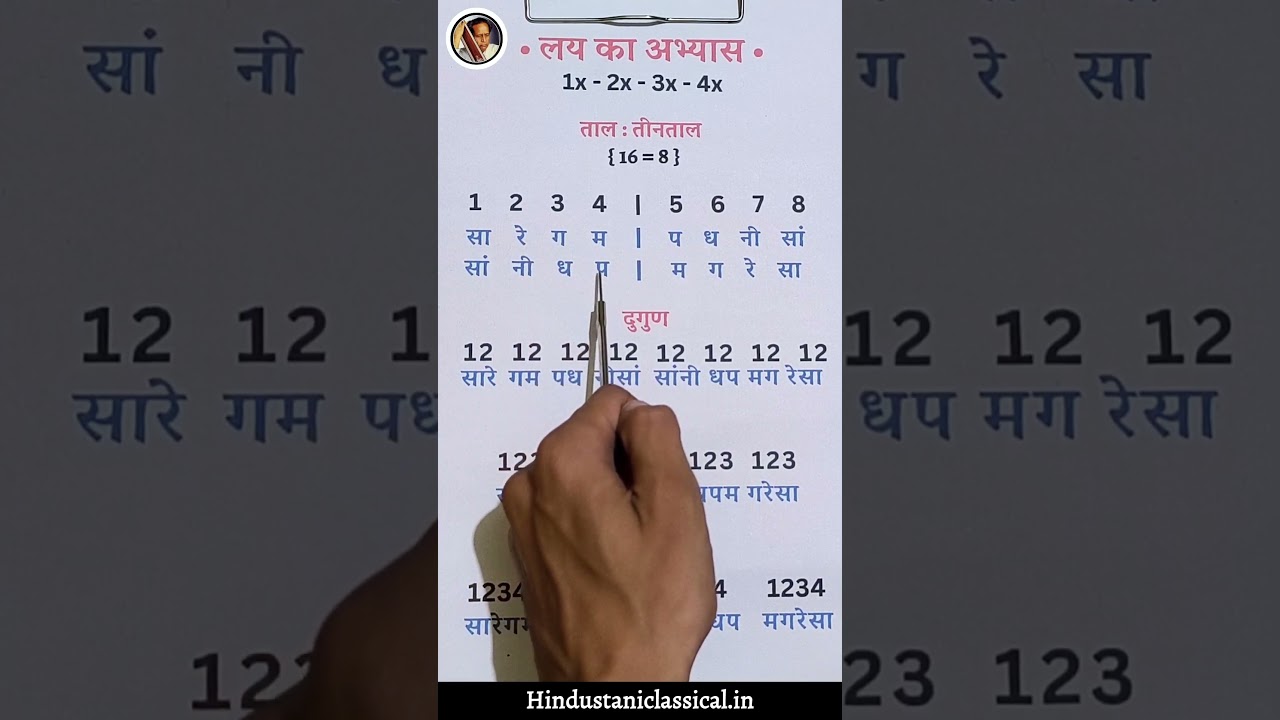 • लय का अभ्यास •
1x - 2x - 3x - 4x
ताल : तीनताल
{ 16 = 8 }
1 2 3 4 | 5 6 7 8
सा रे ग म | प ध नी सां
सां नी ध प | म ग रे सा
दुगुण
12 12 12 12 12 12 12 12
सारे गम पध नीसां सांनी धप मग रेसा
123 123
गरेसा
1234 1234
मगरेसा
Hindustaniclassical.in